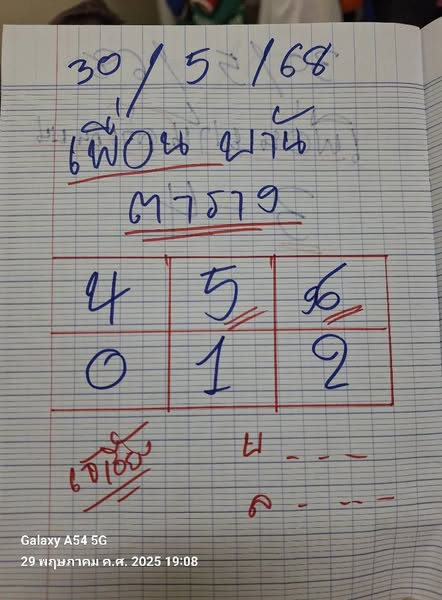 30/5/68
เพื่อน บ้าน
ตาราง
4 5 6
0 1 2
บ - - -
ล - - - -
Galaxy A54 5G
29 พฤษภาคม ค.ศ. 2025 19:08